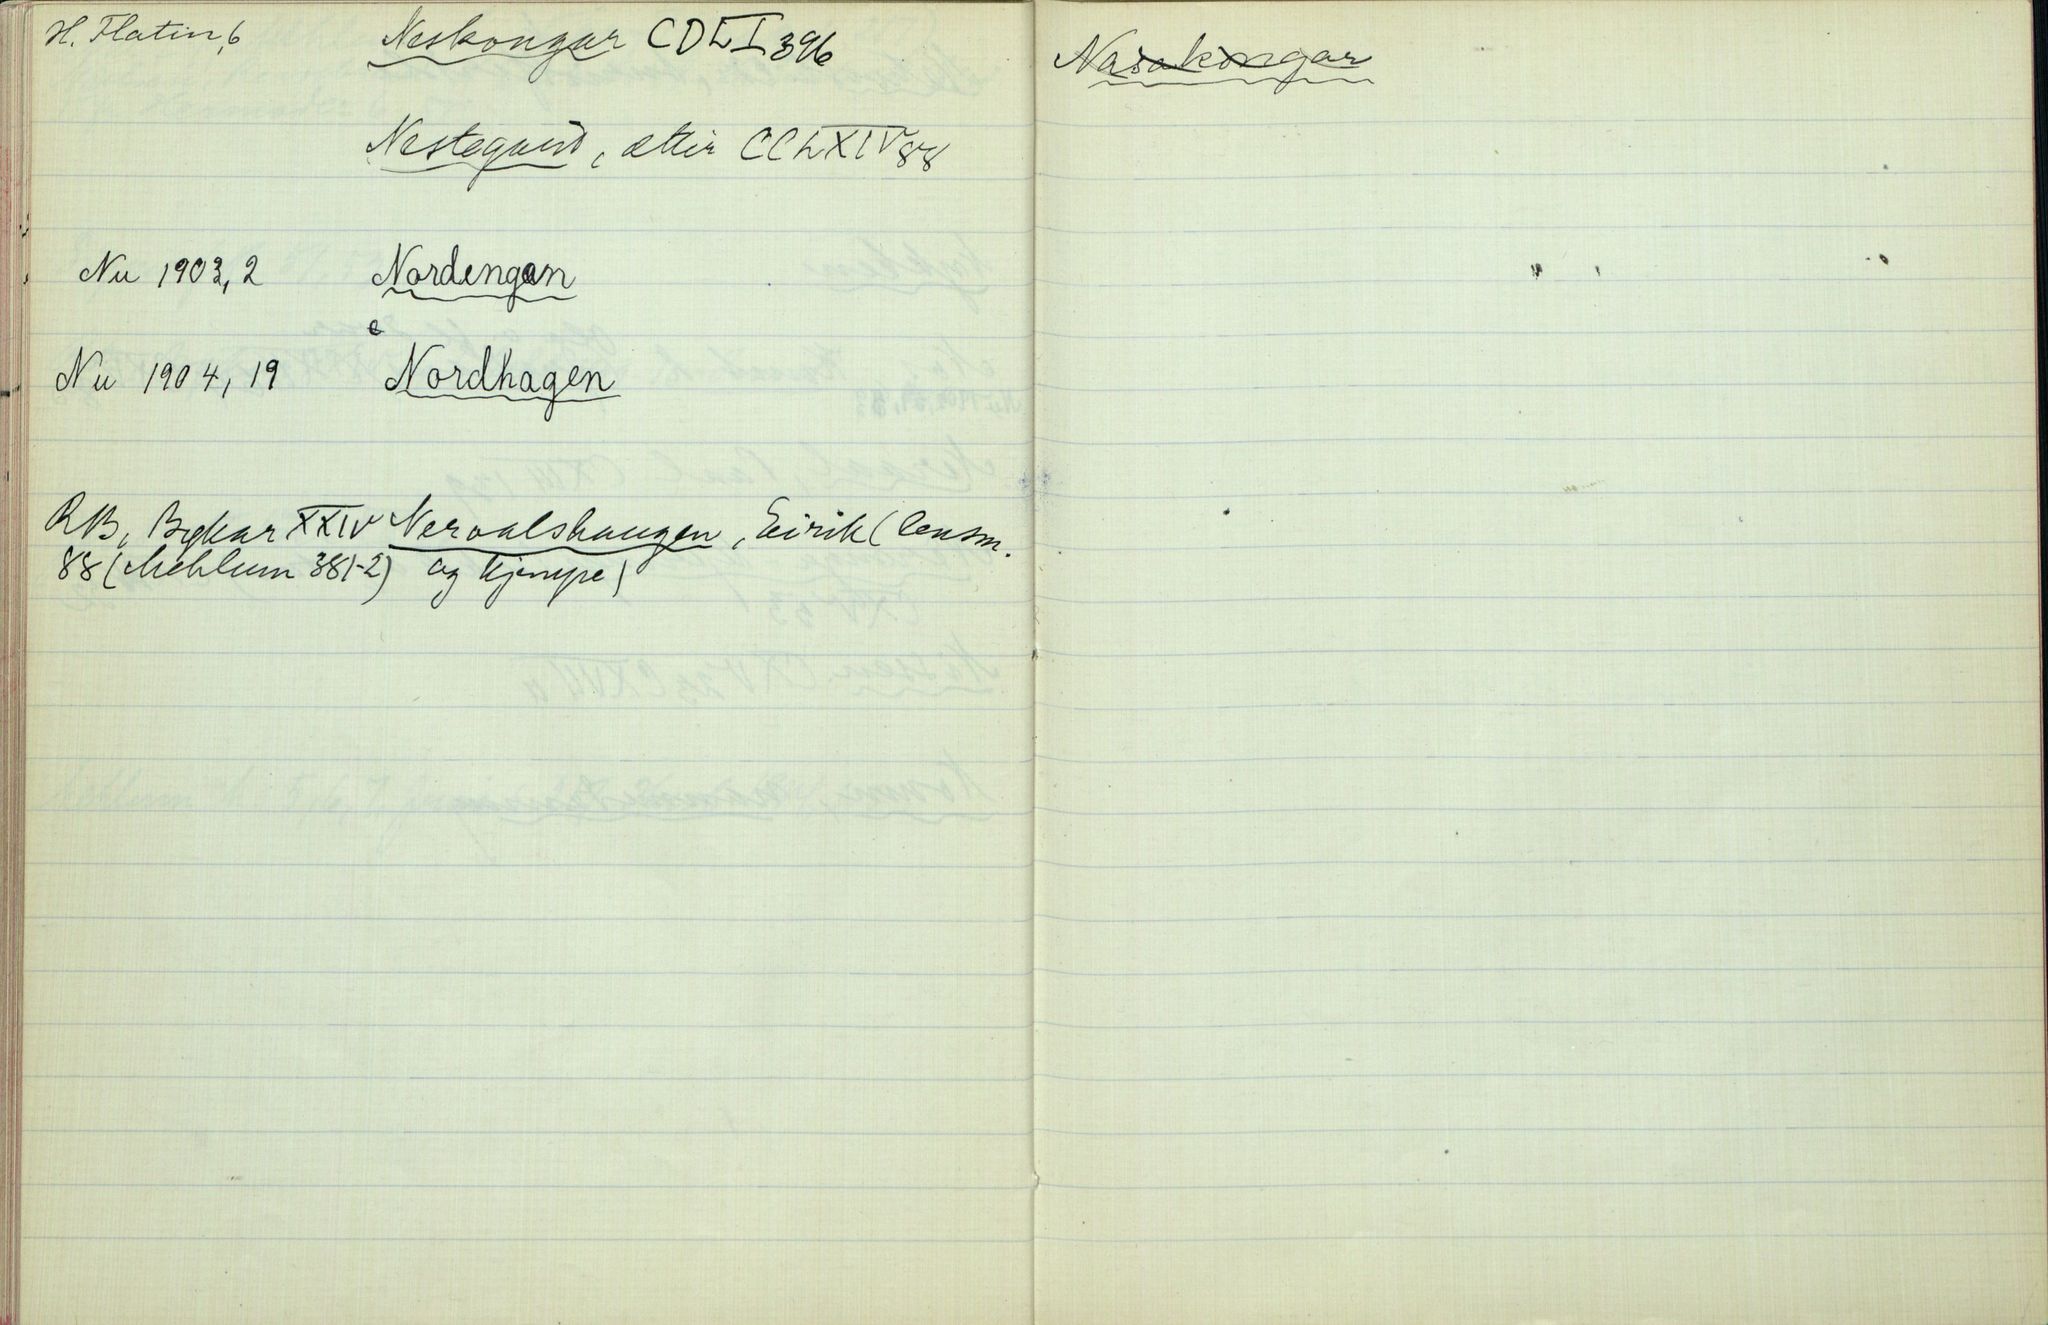 H. Flatin, 6 Neskongar CDLI 396
Nestegard, ætti CCLXIV 88
Nu 1903, 2 Nordengen
Nu 1904, 19 Nordhagen
RB, Bykar XXIV Nervalshaugen, Eirik (lensm.
88 (Mehlum 381-2) og kjempe)
Nasakongar